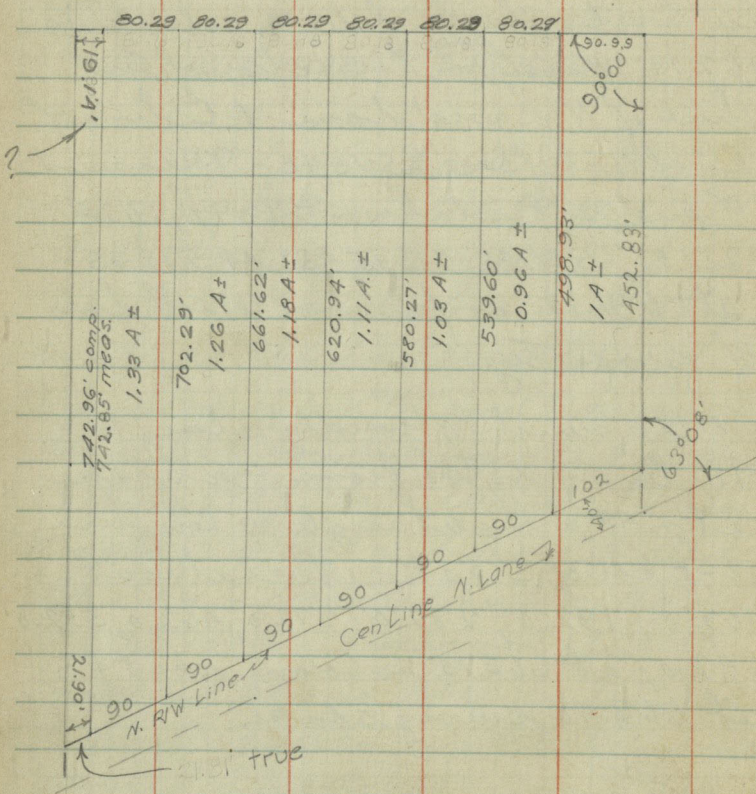 80.29 80.29 80.29 80.29 80.29 80.29
90.99
90°00'
19.14'
?
742.96' comp.
742.85' meas.
1.33 A ±
702.29'
1.26 A ±
661.62'
1.18 A ±
620.94'
1.11 A. ±
580.27'
1.03 A ±
539.60'
0.96 A ±
498.93'
1 A ±
452.83'
63°08'
102
90
90
90
90
90
90
21.90'
N. R/W Line
Cen Line N. Lane
true